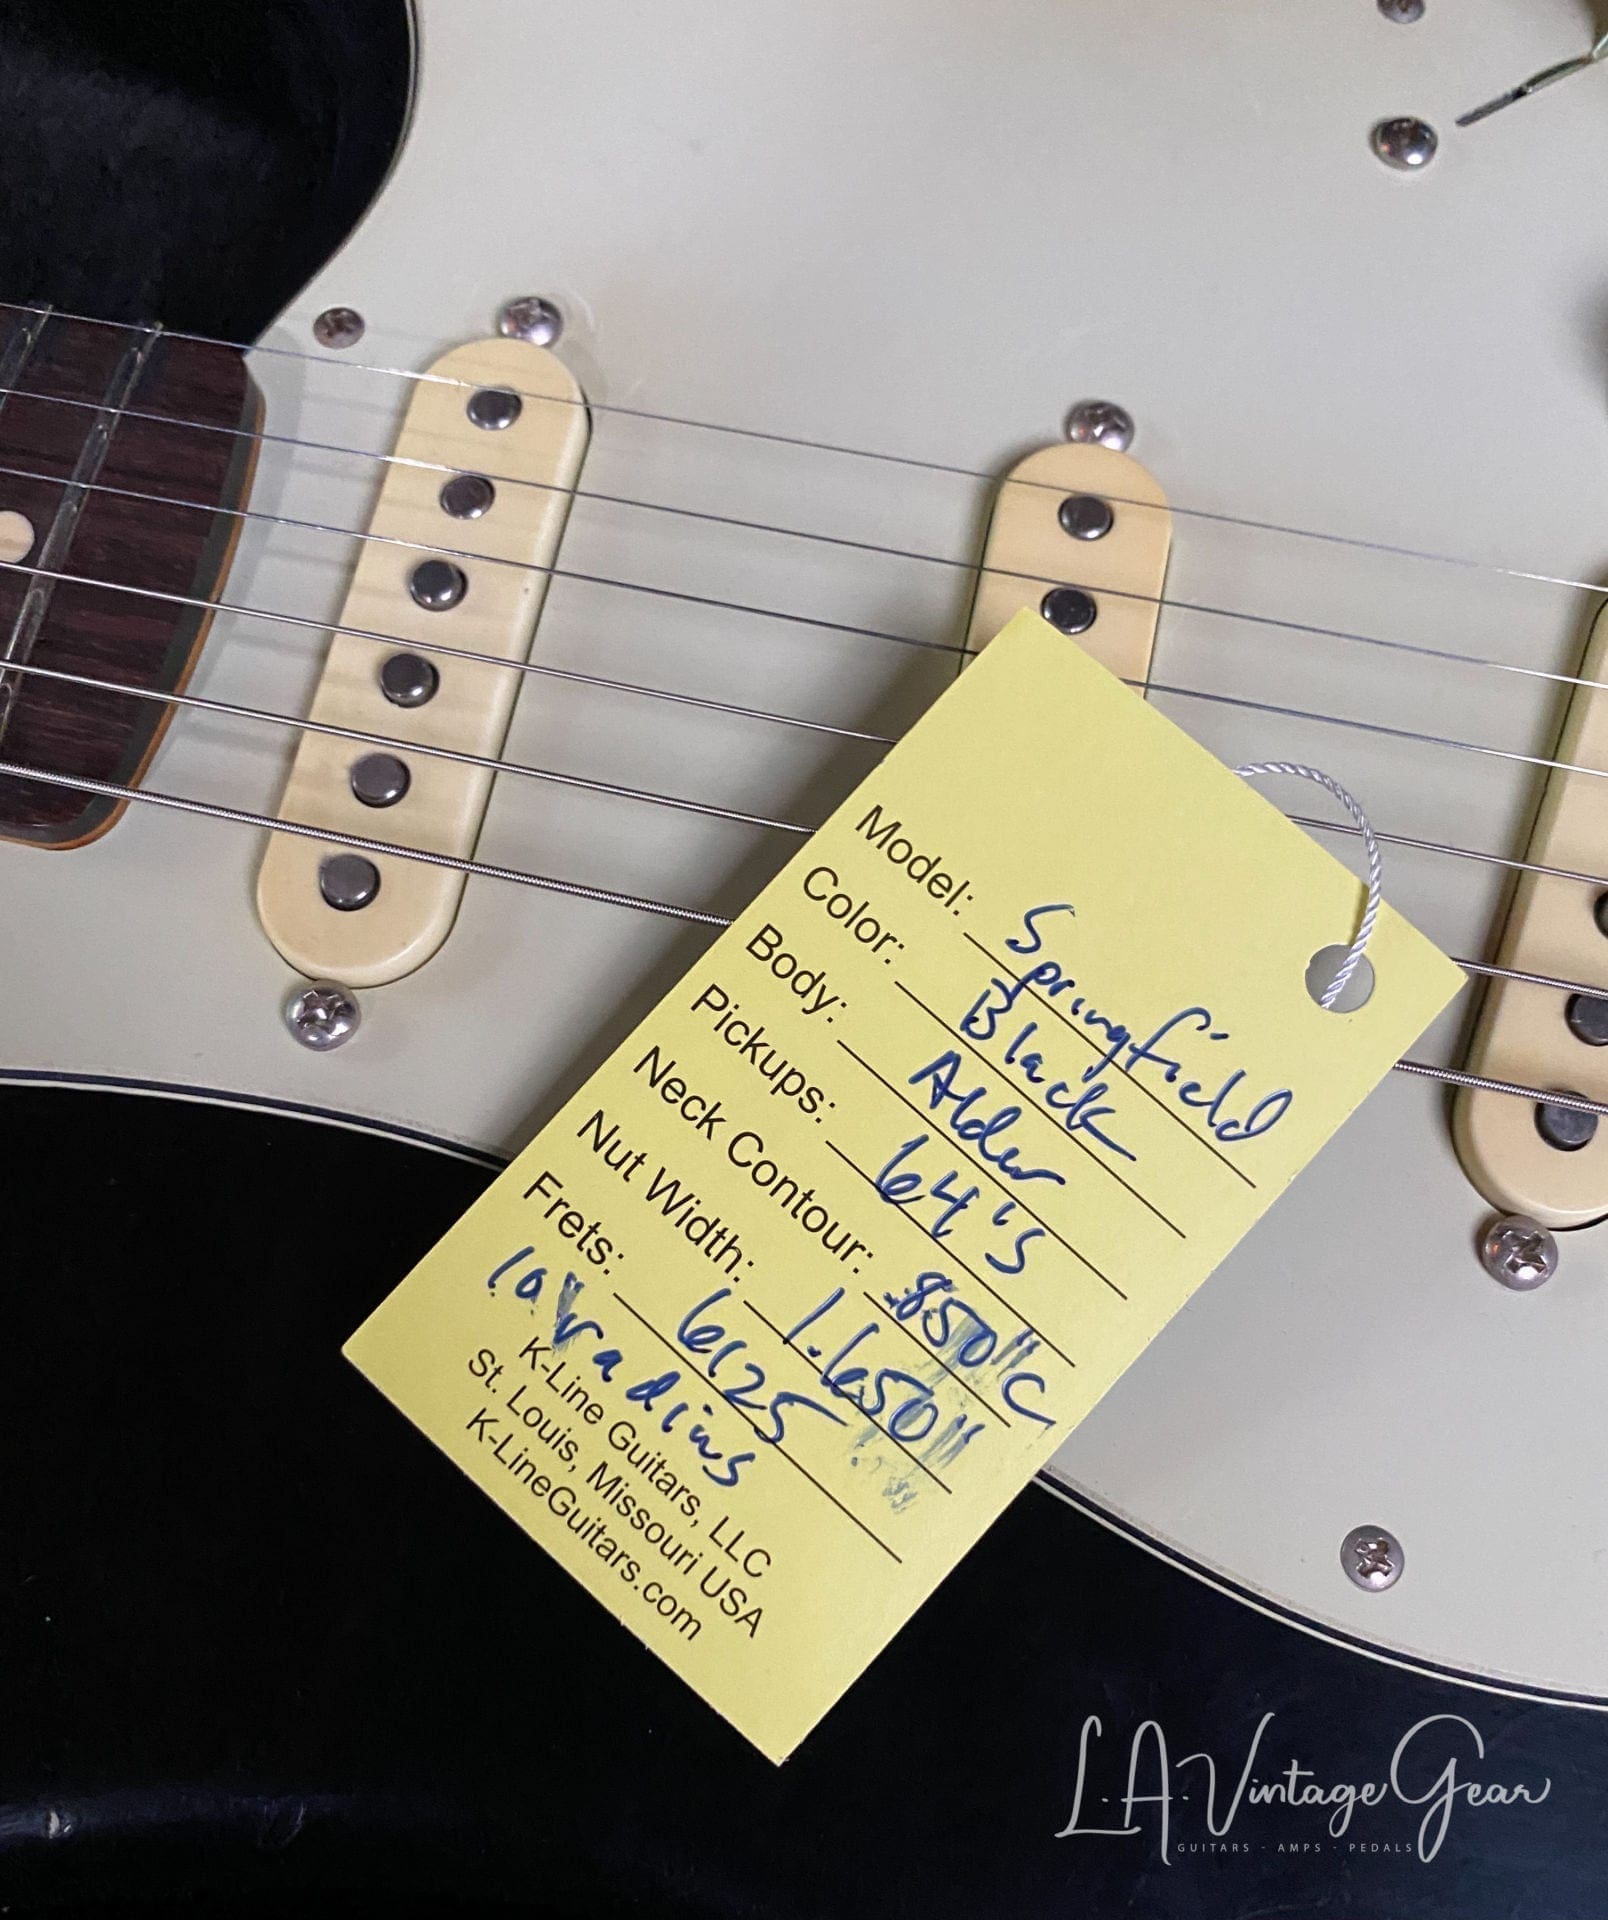 Model: Springfield
Color: Black
Body: Alder
Pickups: 64's
Neck Contour: .850" C
Nut Width: 1.650"
Frets: 6125
10" radius
K-Line Guitars, LLC
St. Louis, Missouri USA
K-LineGuitars.com
L.A. Vintage Gear
GUITARS - AMPS - PEDALS